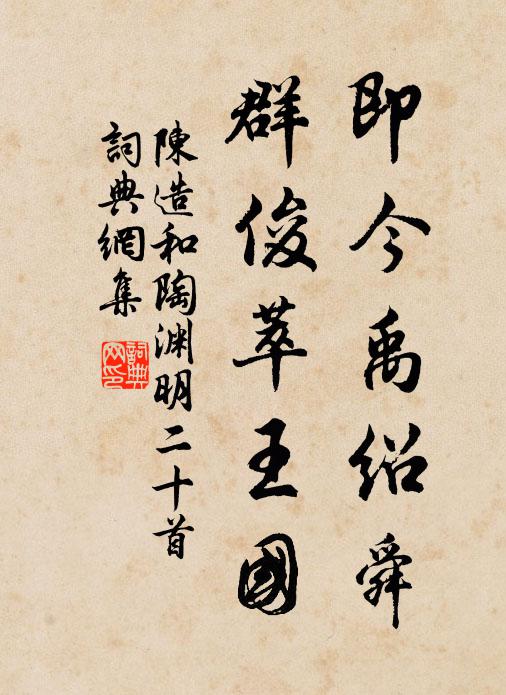 即今禹紹舜
群俊萃王國
陳造和陶渊明二十首
詞典網集
詞典網印